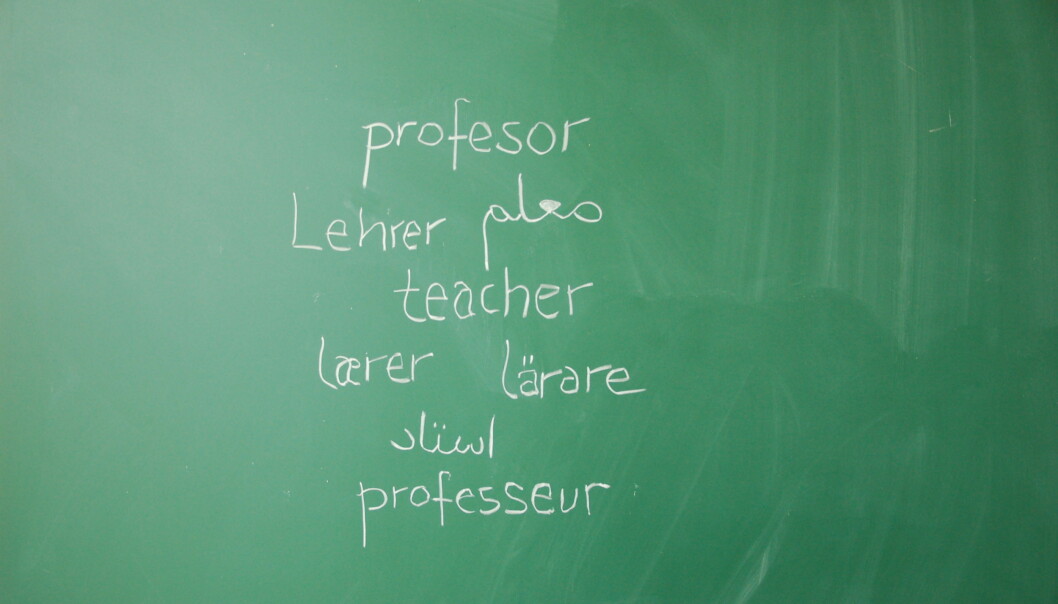 profesor
Lehrer معلم
teacher
lærer lärare
استاد
professeur